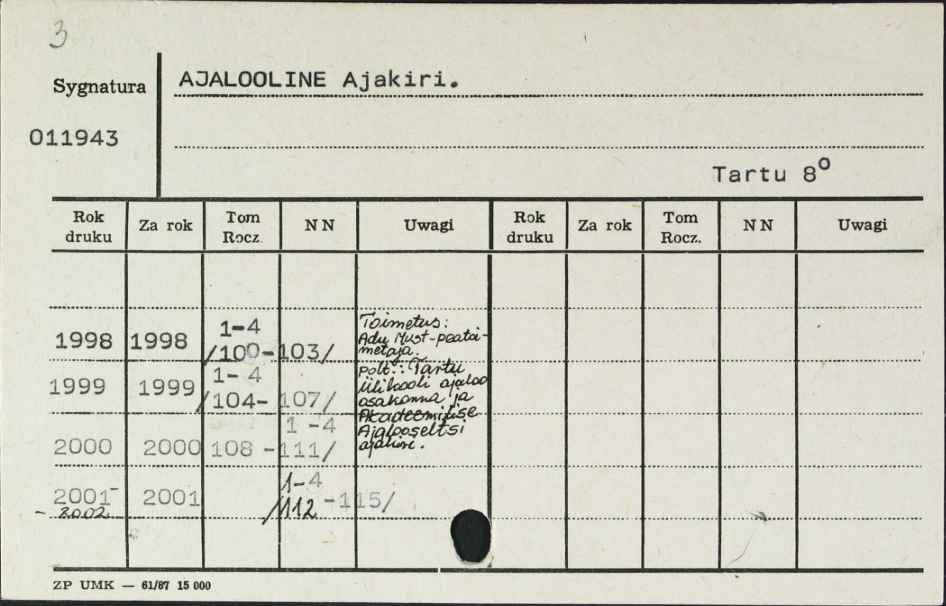 3
Sygnatura
AJALOOLINE Ajakiri.
011943
Tartu 8º
Rok druku Za rok Tom Rocz. NN Uwagi Rok druku Za rok Tom Rocz. NN Uwagi
1998 1998 1-4 /100-103/
1999 1999 1-4 /104-107/
2000 2000 108-111/ 1-4
2001- -2002. 2001 1-4 /112-115/
Toimetus:
Adu Must-peatoi-
metaja.
polt.: Tartu
Ülikooli ajaloo
osakonna ja
Akadeemilise
Ajalooseltsi
ajakiri.
ZP UMK — 61/87 15 000